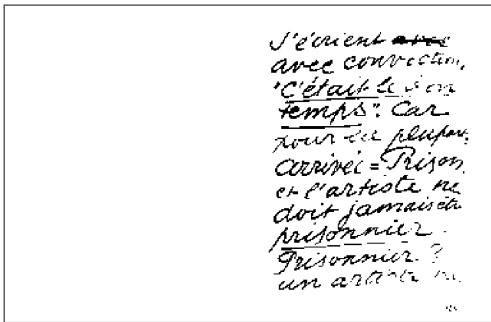 s'écrient
avec conviction,
"C'était le bon
temps". Car
pour la plupart,
arrivée = Prison
et l'artiste ne
doit jamais être
prisonnier.
Prisonnier ?
un artiste ne